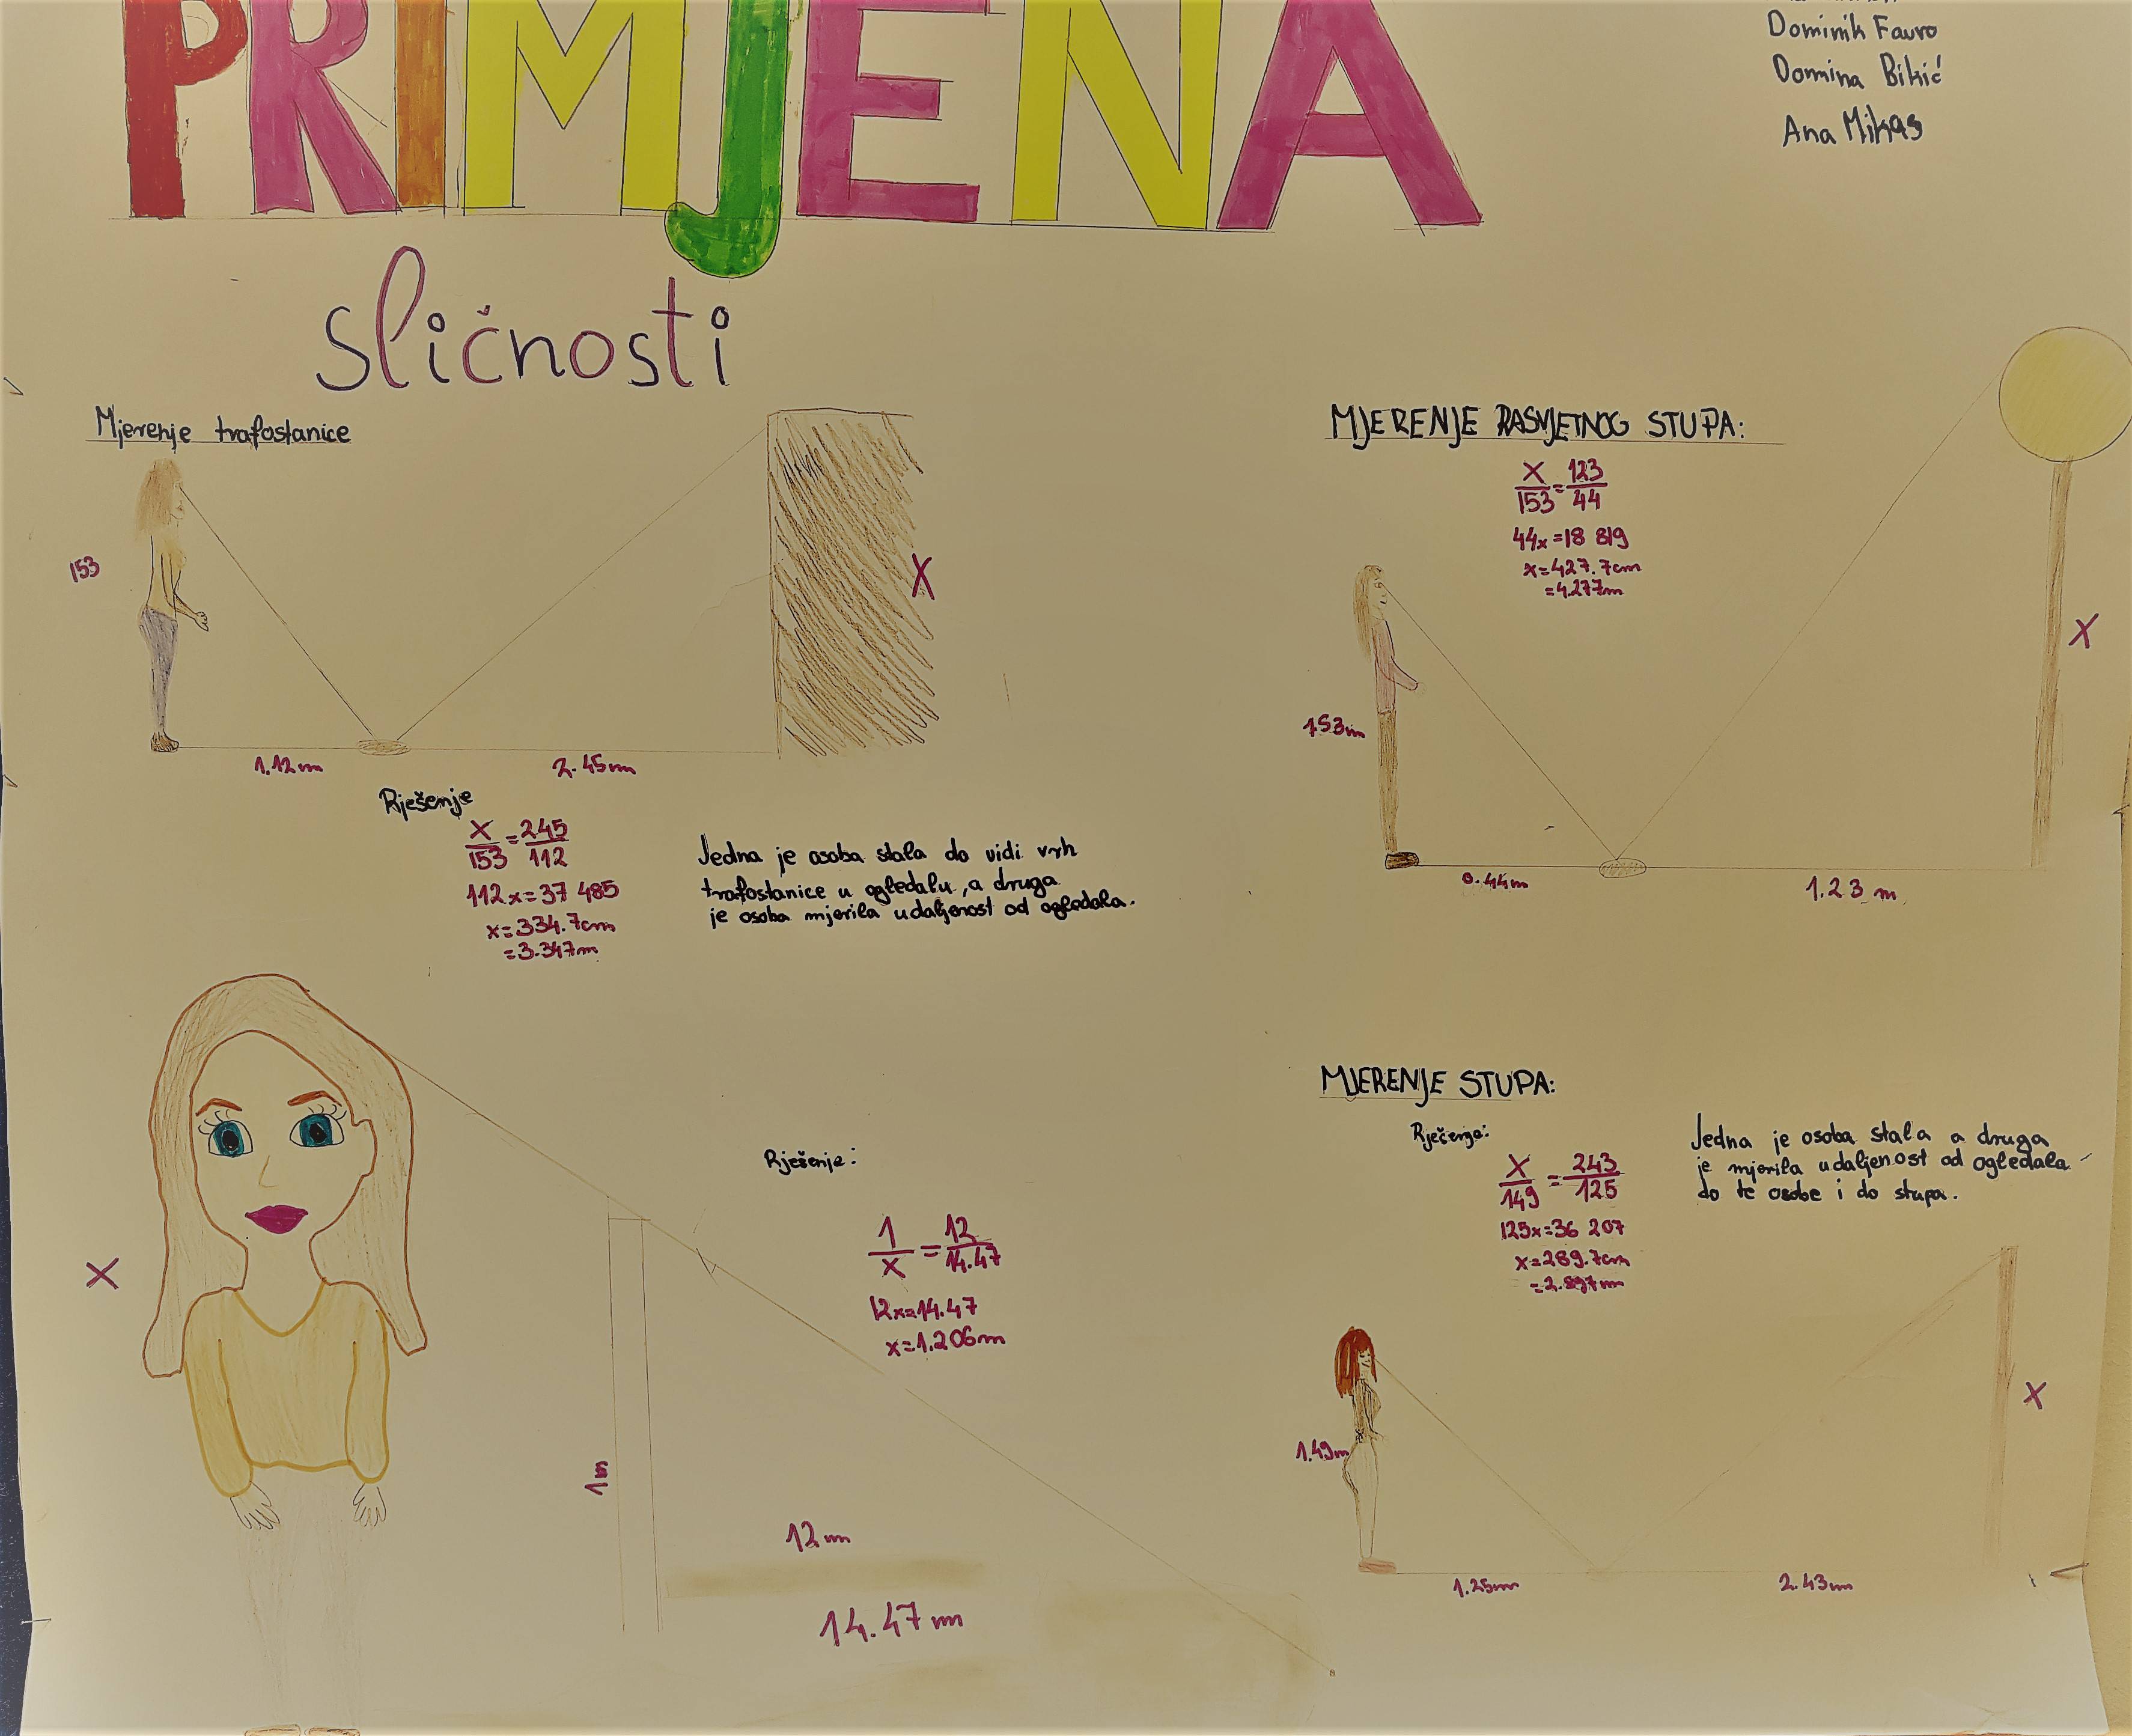 PRIMJENA
sličnosti
Dominik Favro
Domina Bikić
Ana Mikas
Mjerenje trafostanice
153
X
1.12m
2.45m
Rješenje
X/153=245/112
112x=37 485
x=334.7cm
=3.347m
Jedna je osoba stala do vidi vrh
trafostanice u ogledalu, a druga
je osoba mjerila udaljenost od ogledala.
MJERENJE RASVJETNOG STUPA:
X/153=123/44
44x=18 819
x=427.7cm
=4.277m
X
153m
0.44m
1.23 m
X
Rješenje:
1/x=12/14.47
12x=14.47
x=1.206m
1m
12m
14.47m
MJERENJE STUPA:
Rješenje:
X/149=243/125
125x=36 207
x=289.7cm
=2.897m
Jedna je osoba stala a druga
je mjerila udaljenost od ogledala
do te osobe i do stupa.
1.49m
X
1.25m
2.43m